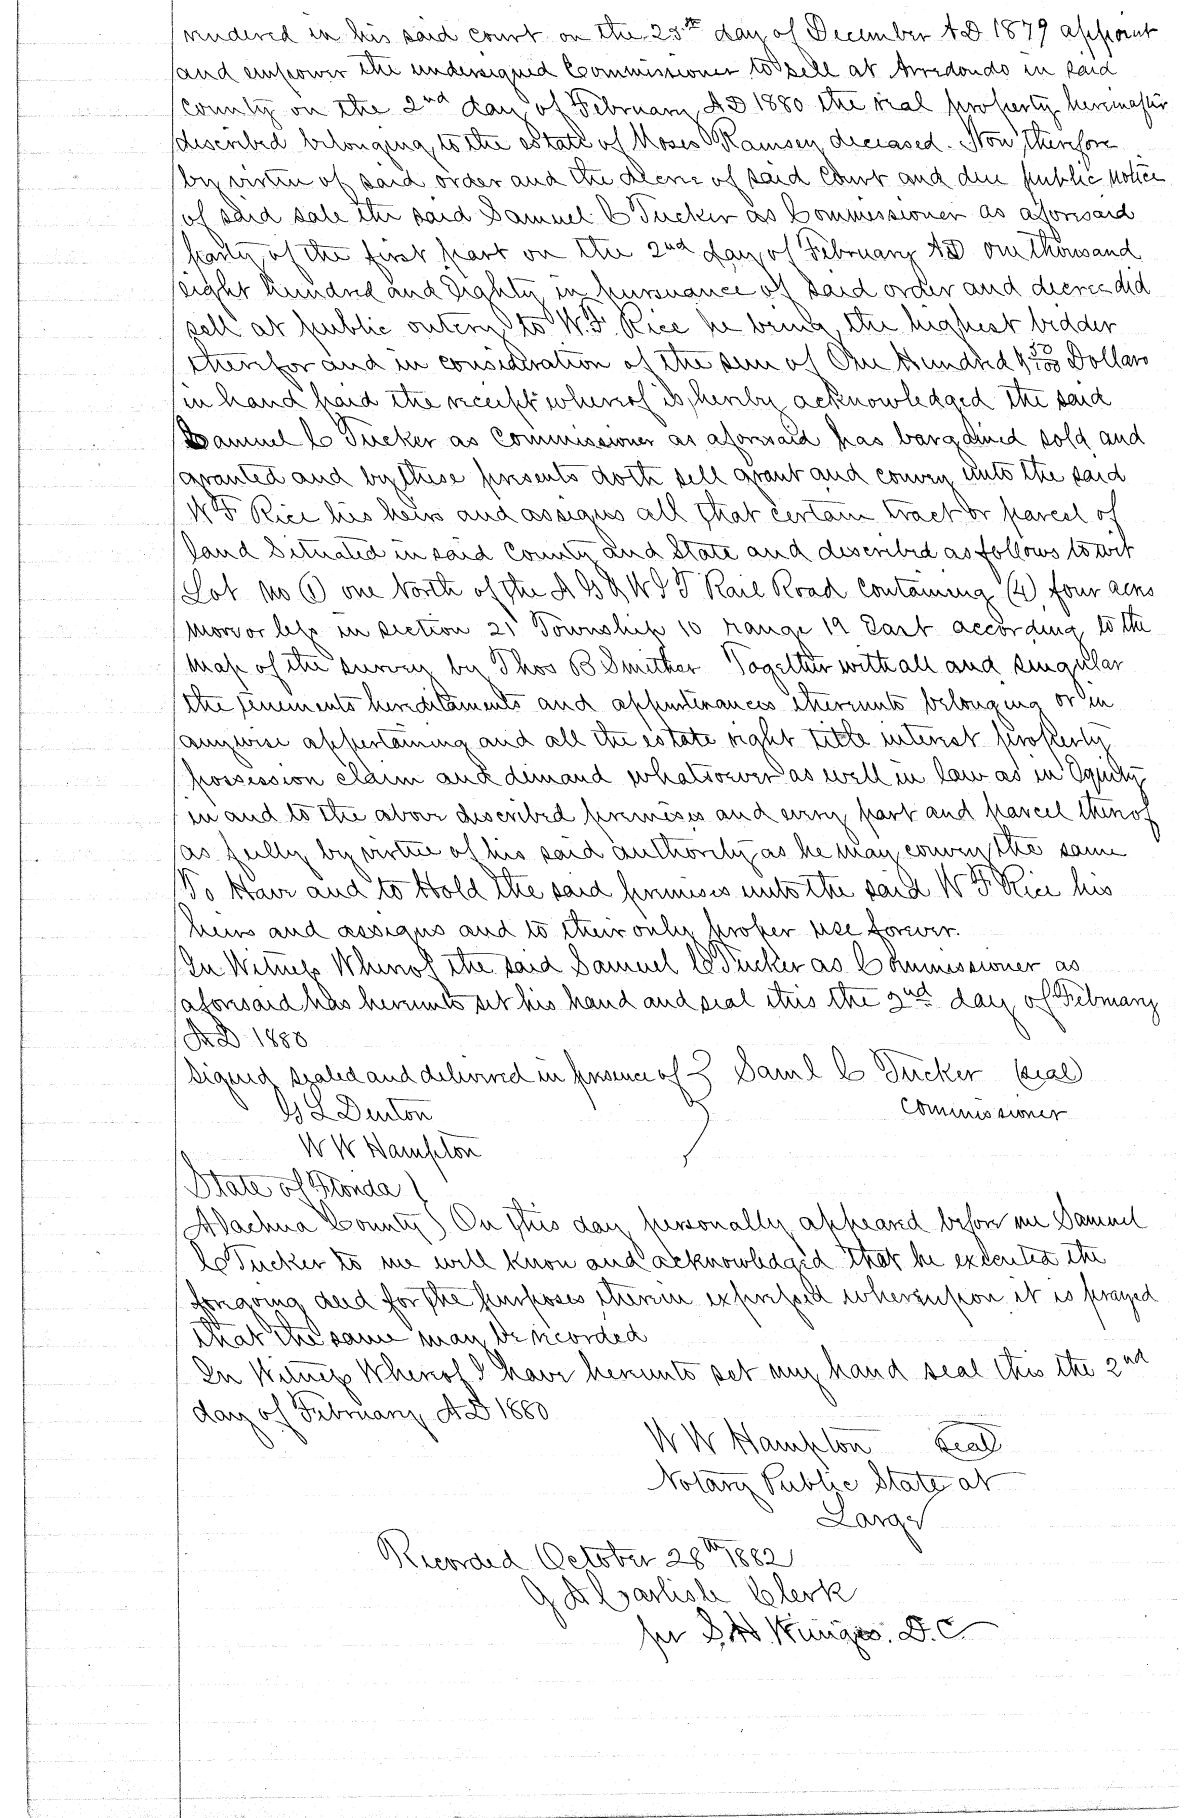 rendered in his said court on the 25th day of December AD 1879 appoint
and empower the undersigned Commissioner to sell at Arredondo in said
County on the 2nd day of February AD 1880 the real property hereinafter
described belonging to the estate of Moses Ramsey deceased. Now therefore
by virtue of said order and the decree of said Court and due public notice
of said sale the said Samuel C Tucker as Commissioner as aforesaid
party of the first part on the 2nd day of February AD one thousand
eight hundred and Eighty in pursuance of said order and decree did
sell at public outcry to W. F. Rice he being the highest bidder
therefor and in consideration of the sum of One Hundred & 50/100 Dollars
in hand paid the receipt whereof is hereby acknowledged the said
Samuel C Tucker as Commissioner as aforesaid has bargained sold and
granted and by these presents doth sell grant and convey unto the said
W F Rice his heirs and assigns all that certain tract or parcel of
land Situated in said County and State and described as follows to wit
Lot no (1) one North of the A G & W I T Rail Road containing (4) four acres
more or less in section 21 Township 10 range 19 East according to the
map of the survey by Thos B Smither Together with all and singular
the tenements hereditaments and appurtenances thereunto belonging or in
anywise appertaining and all the estate right title interest property
possession claim and demand whatsoever as well in law as in Equity
in and to the above described premises and every part and parcel thereof
as fully by virtue of his said authority as he may convey the same
To Have and to Hold the said premises unto the said W F Rice his
heirs and assigns and to their only proper use forever.
In Witness Whereof the said Samuel C Tucker as Commissioner as
aforesaid has hereunto set his hand and seal this the 2nd day of February
AD 1880
Signed sealed and delivered in presence of } Saml C Tucker (seal)
G L Denton Commissioner
W W Hampton
State of Florida }
Alachua County } On this day personally appeared before me Samuel
C Tucker to me well know and acknowledged that he executed the
foregoing deed for the purposes therein expressed whereupon it is prayed
that the same may be recorded
In Witness Whereof I have hereunto set my hand seal this the 2nd
day of February AD 1880
W W Hampton seal
Notary Public State at
Large
Recorded October 28th 1882
J A Carlisle Clerk
per S. H. D. C.